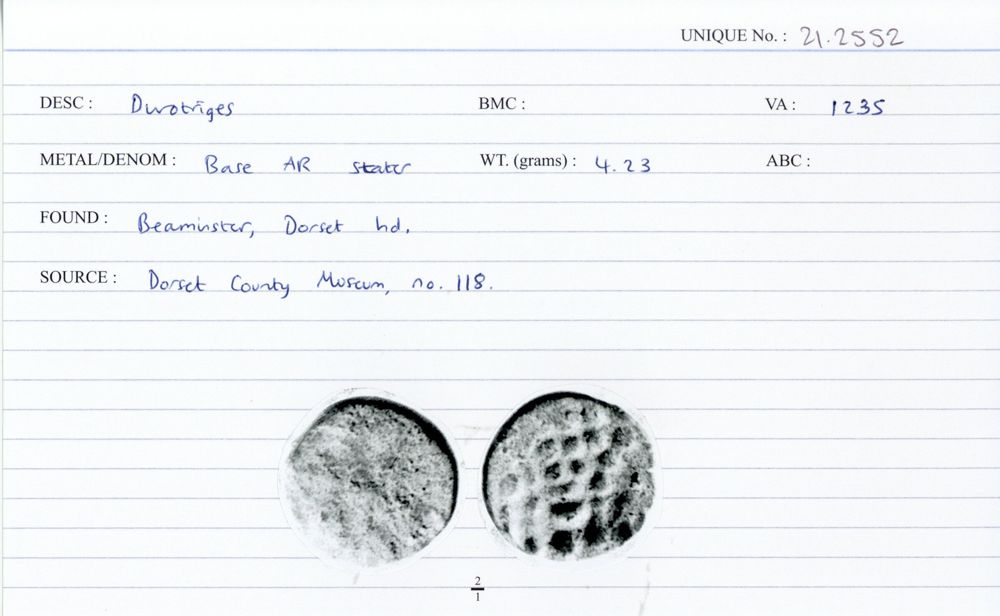 UNIQUE No. : 21.2552
DESC : Durotriges BMC : VA : 1235
METAL/DENOM : Base AR stater WT. (grams) : 4.23 ABC :
FOUND : Beaminster, Dorset hd.
SOURCE : Dorset County Museum, no. 118.
2
1